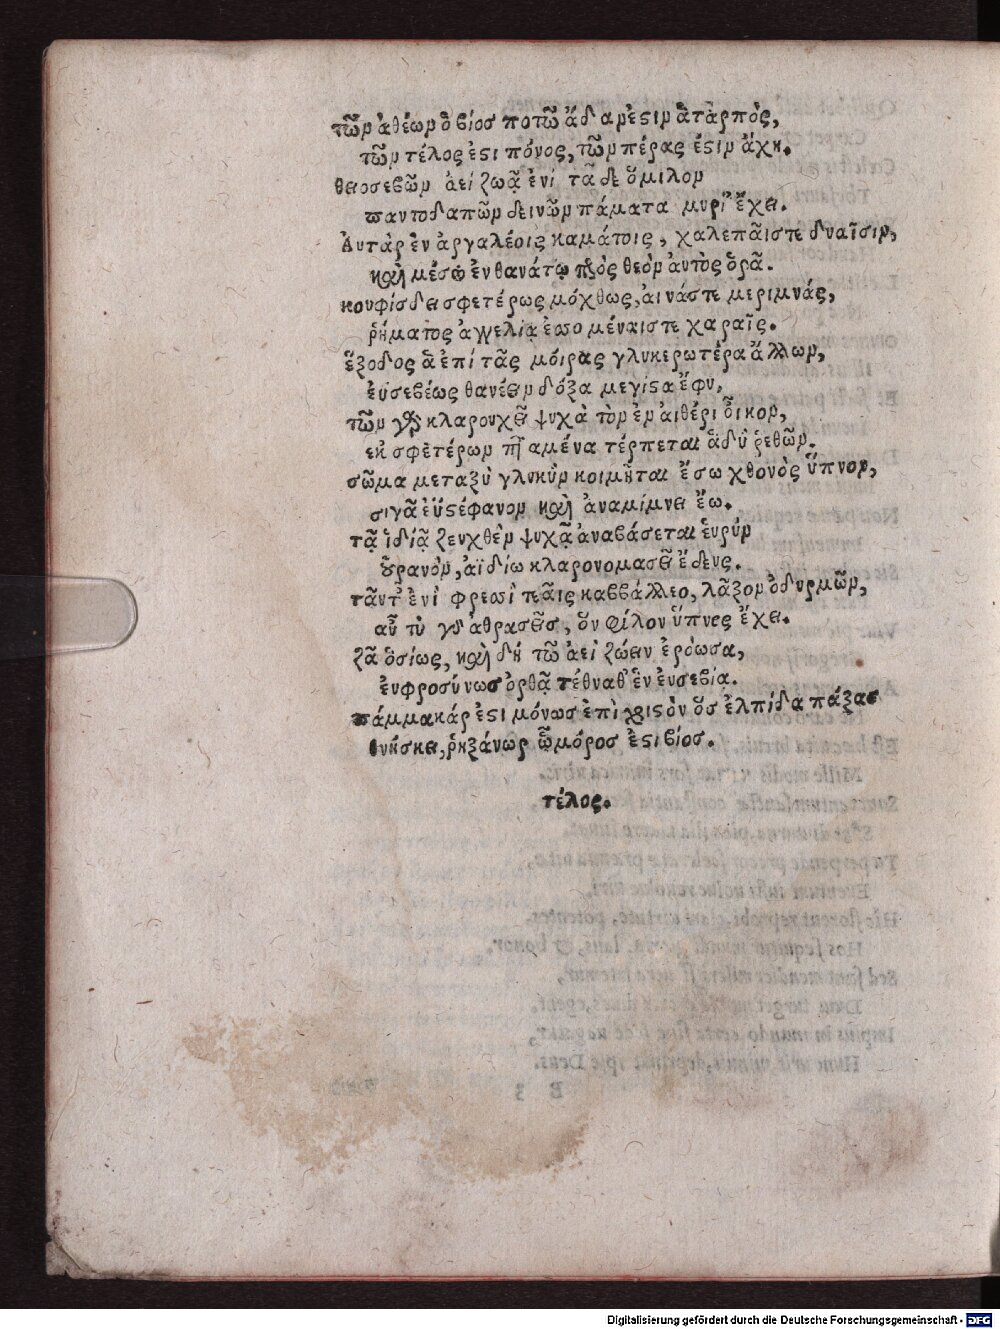 τῶν ἀθέων ὁ βίοσ ποτῶ ἄδαν ἐστὶν ἀταρπὸς,
τῶν τέλος ἐστι πόνος, τῶν πέρας ἐστὶν ἄχη.
θεοσεβῶν ἀεὶ ζωᾷ ἐνὶ τᾷδε ὅμιλον
παντοδαπῶν δεινῶν πάματα μυρί' ἔχει.
Αυτὰρ ἐν ἀργαλέοις καμάτοις, χαλεπᾶιστε δυαῖσιν,
καὶ μέσῳ ἐν θανάτῳ πρὸς θεὸν αυτὸς ὁρᾷ.
κουφίσδει σφετέρως μόχθως, αἰνάστε μεριμνάς,
ῥήματος ἀγγελίᾳ ἑσομέναιστε χαραῖς.
ἔξοδος ἁ ἐπὶ τᾶς μόιρας γλυκερωτέρα ἄλλων,
ἐυσεβέως θανέειν δόξα μεγίστα ἔφυ,
τῶν γὰρ κλαρουχεῖ ψυχὰ τὸν ἐν αἰθέρι ὂικον,
ἐκ σφετέρων πταμένα τέρπεται ἁδὺ ῥεθῶν.
σῶμα μεταξὺ γλυκὺν κοιμᾶται ἔσω χθονὸς ὕπνον,
σιγᾷ ἐϋστέφανον καὶ ἀναμίμνει ἔω.
τᾷ ἰδίᾳ ζευχθὲν ψυχᾷ ἀναβάσεται ἐυρύν
οὐρανὸν, ἀϊδίω κλαρονομασεῖ ἕδευς.
ταῦτ' ἐνὶ φρεσὶ παῖς καββάλλεο, λᾶξον ὀδυρμῶν,
αὖ τὺ γὰρ ἀθρασεῖς, ὃν φίλον ὕπνες ἔχει.
ζᾶ ὁσίως, καὶ δὴ τῶ ἀεὶ ζώειν ἐρόωσα,
ἐυφροσύνωσ ὀρθᾷ τέθναθ' ἐν ἐυσεβίᾳ.
πάμμακάρ ἐστι μόνωσ ἐπὶ χριστὸν ὅσ ἐλπίδα πάξας
θνήσκει, ῥηξάνωρ ὠμόροσ ἐστὶ βίος.
τέλος.
Digitalisierung gefördert durch die Deutsche Forschungsgemeinschaft - DFG